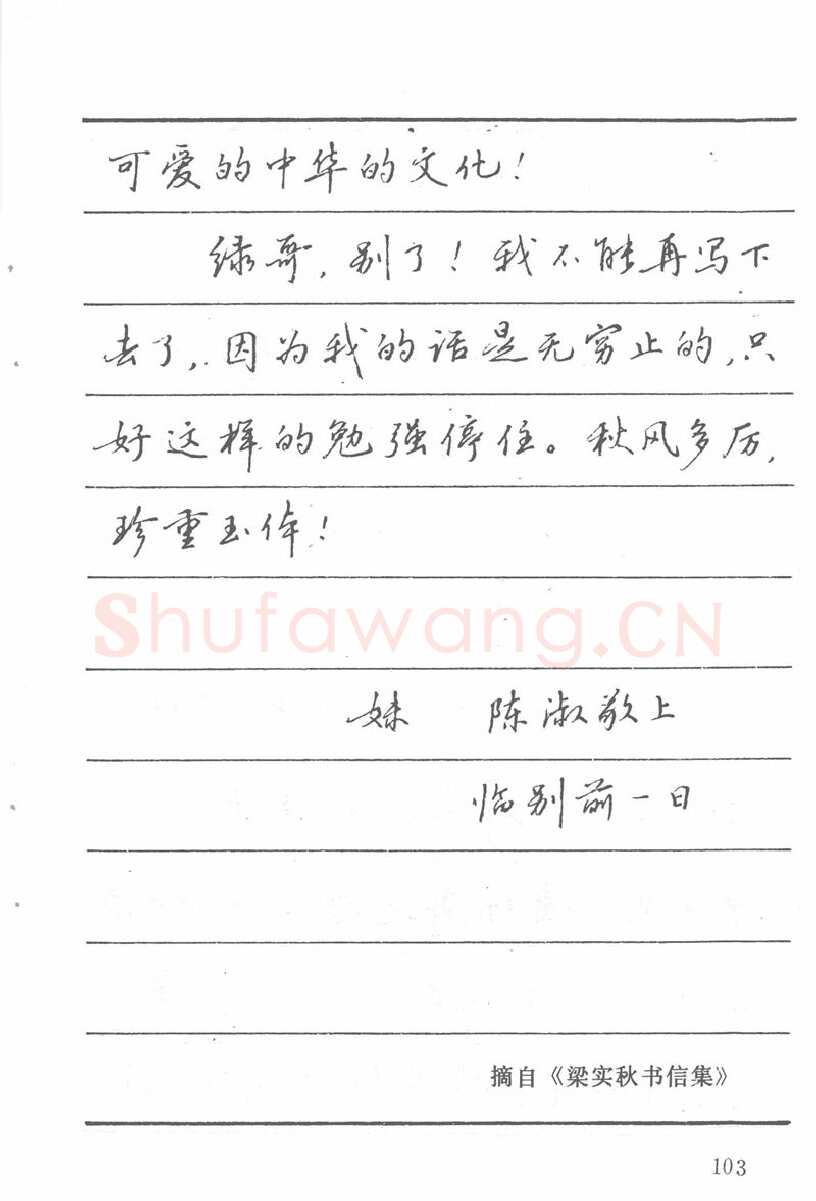 可爱的中华的文化！
绿哥，别了！我不能再写下
去了，因为我的话是无穷止的，只
好这样的勉强停住。秋风多厉，
珍重玉体！
Shufawang.CN
妹 陈淑敬上
临别前一日
摘自《梁实秋书信集》
103